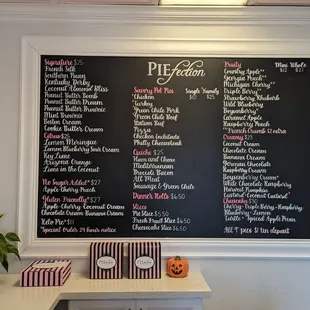 PIEfection
Signature $25
French Silk
Southern Pecan
Kentucky Derby
Coconut Almond Bliss
Peanut Butter Bomb
Peanut Butter Dream
Peanut Butter Brownie
Mint Brownie
Boston Cream
Cookie Butter Cream
Citrus $25
Lemon Meringue
Lemon Blueberry Sour Cream
Key Lime
Arizona Orange
Lime in the Coconut
No Sugar Added* $27
Apple Cherry Peach
Gluten Friendly* $27
Apple Cherry Coconut
Chocolate Cream Banana Cream
Keto Pie*
*Special Order 24 hour notice
Savory Pot Pies
Single Family
*Chicken
*Turkey
*Green Chile Pork
*Green Chile Beef
Italian Beef
Pizza
Chicken Enchilada
Philly Cheesesteak
Quiche $25
Ham and Cheese
Mediterranean
Broccoli Bacon
All Meat
Sausage & Green Chile
Dinner Rolls $4.50
Slices
Pie Slice $5.50
Fresh Fruit Slice $4.50
Cheesecake Slice $4.50
Fruity
Mini Whole
Country Apple**
Georgia Peach**
Michigan Cherry**
Triple Berry**
Strawberry Rhubarb
Wild Blueberry
Boysenberry*
Caramel Apple
Raspberry Peach
**French Crumb $2 extra
Creamy $23
Coconut Cream
Chocolate Cream
Banana Cream
German Chocolate
Pecan Cream
Raspberry Cream
Boysenberry Cream*
White Chocolate Raspberry
Natural Pumpkin
Custard-Coconut Custard
Cheesecake $30
Cherry-Triple Berry-Raspberry
Blueberry-Lemon
Turtle-Spiced Apple Pecan
Add 9" pies $1 tin deposit